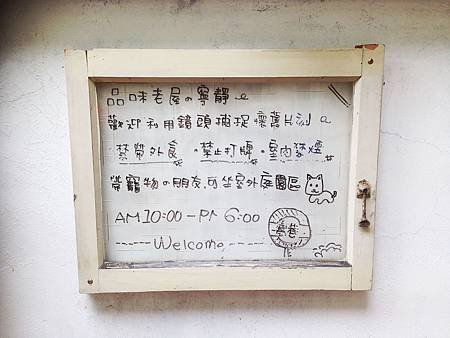 品味老屋の寧靜
歡迎利用鏡頭捕捉懷舊片刻
禁帶外食 · 禁止打牌 · 室內禁煙
帶寵物の朋友, 可坐室外庭園區
AM 10:00 - PM 6:00
------ Welcome ------
巷